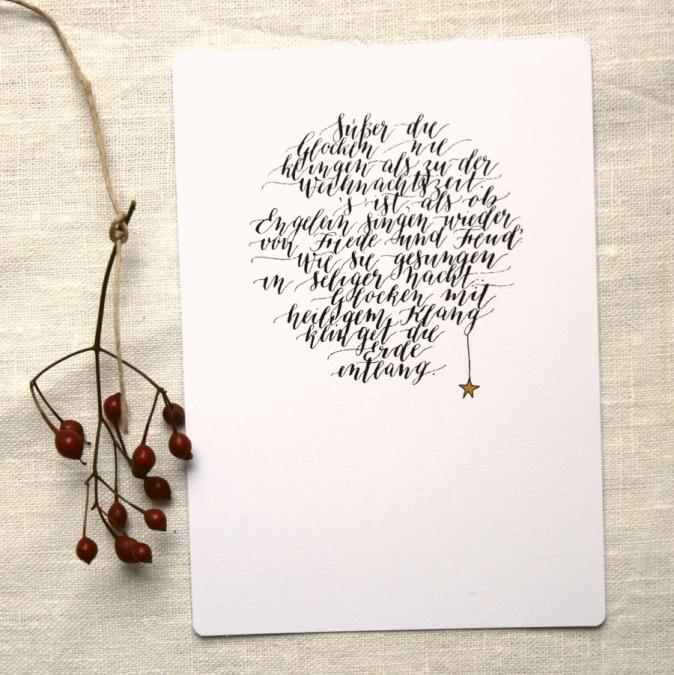 Süßer die
Glocken nie
klingen als zu der
Weihnachtszeit.
's ist, als ob
Engelein singen wieder
von Friede und Freud'.
Wie sie gesungen
in seliger Nacht.
Glocken mit
heiligem Klang
klinget die
Erde
entlang.